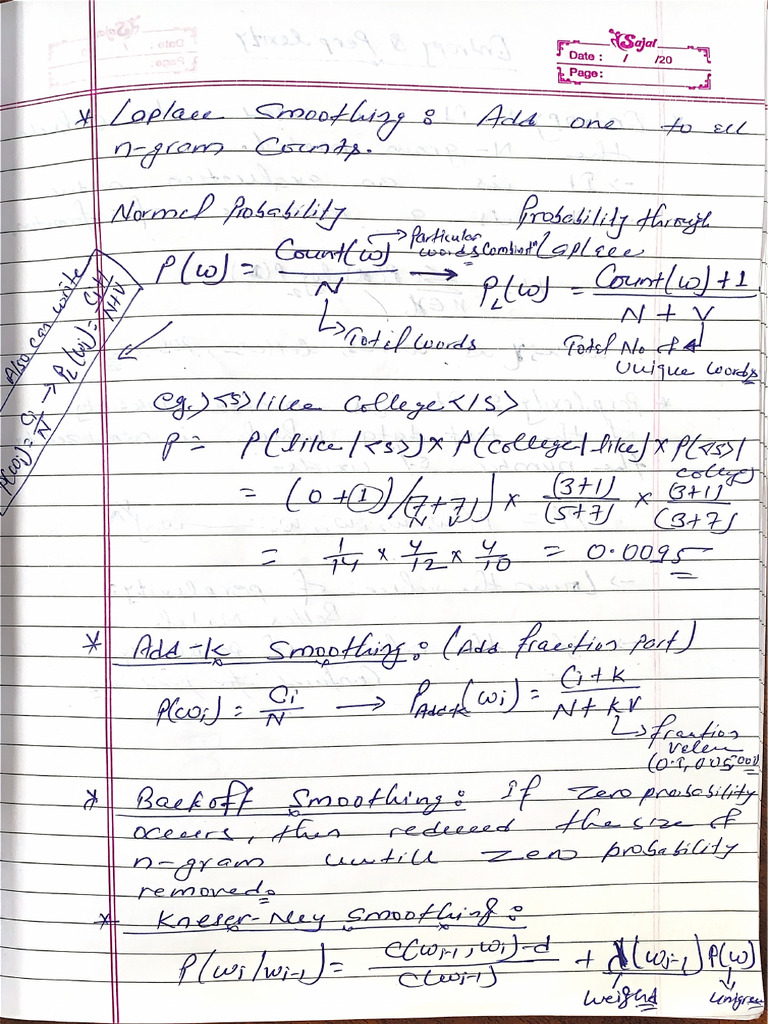 Sajal
Date : / /20
Page:
* Laplace Smoothing : Add one to all
n-gram Counts.
Normal Probability Probability through
Laplace
P(w) = Count(w) / N → P_L(w) = Count(w) + 1 / N + V
→ Particular words Combinatn
↳ Total words
Total No of
Unique words
Also can write
P(wi) = Ci / N → P_L(wi) = Ci+1 / N+V
eg.) <s> like College </s>
P = P(like/<s>) × P(college/like) × P(</s>/
college)
= (0 + 1) / (7 + 7) × (3+1) / (5+7) × (3+1) / (3+7)
N V
= 1/14 × 4/12 × 4/10 = 0.0095
* Add-k Smoothing : (Add fraction part)
P(wi) = Ci / N → P_Add-k (wi) = Ci + k / N + kV
↳ fraction
(0.1, 0.05,
* Backoff Smoothing : if zero probability
occurs, then reduced the size of
n-gram untill zero probability
removed.
* Kneser-Ney Smoothing :
P(wi/wi-1) = C(wi-1, wi) - d / C(wi-1) + λ(wi-1) P(w)
weight unigram